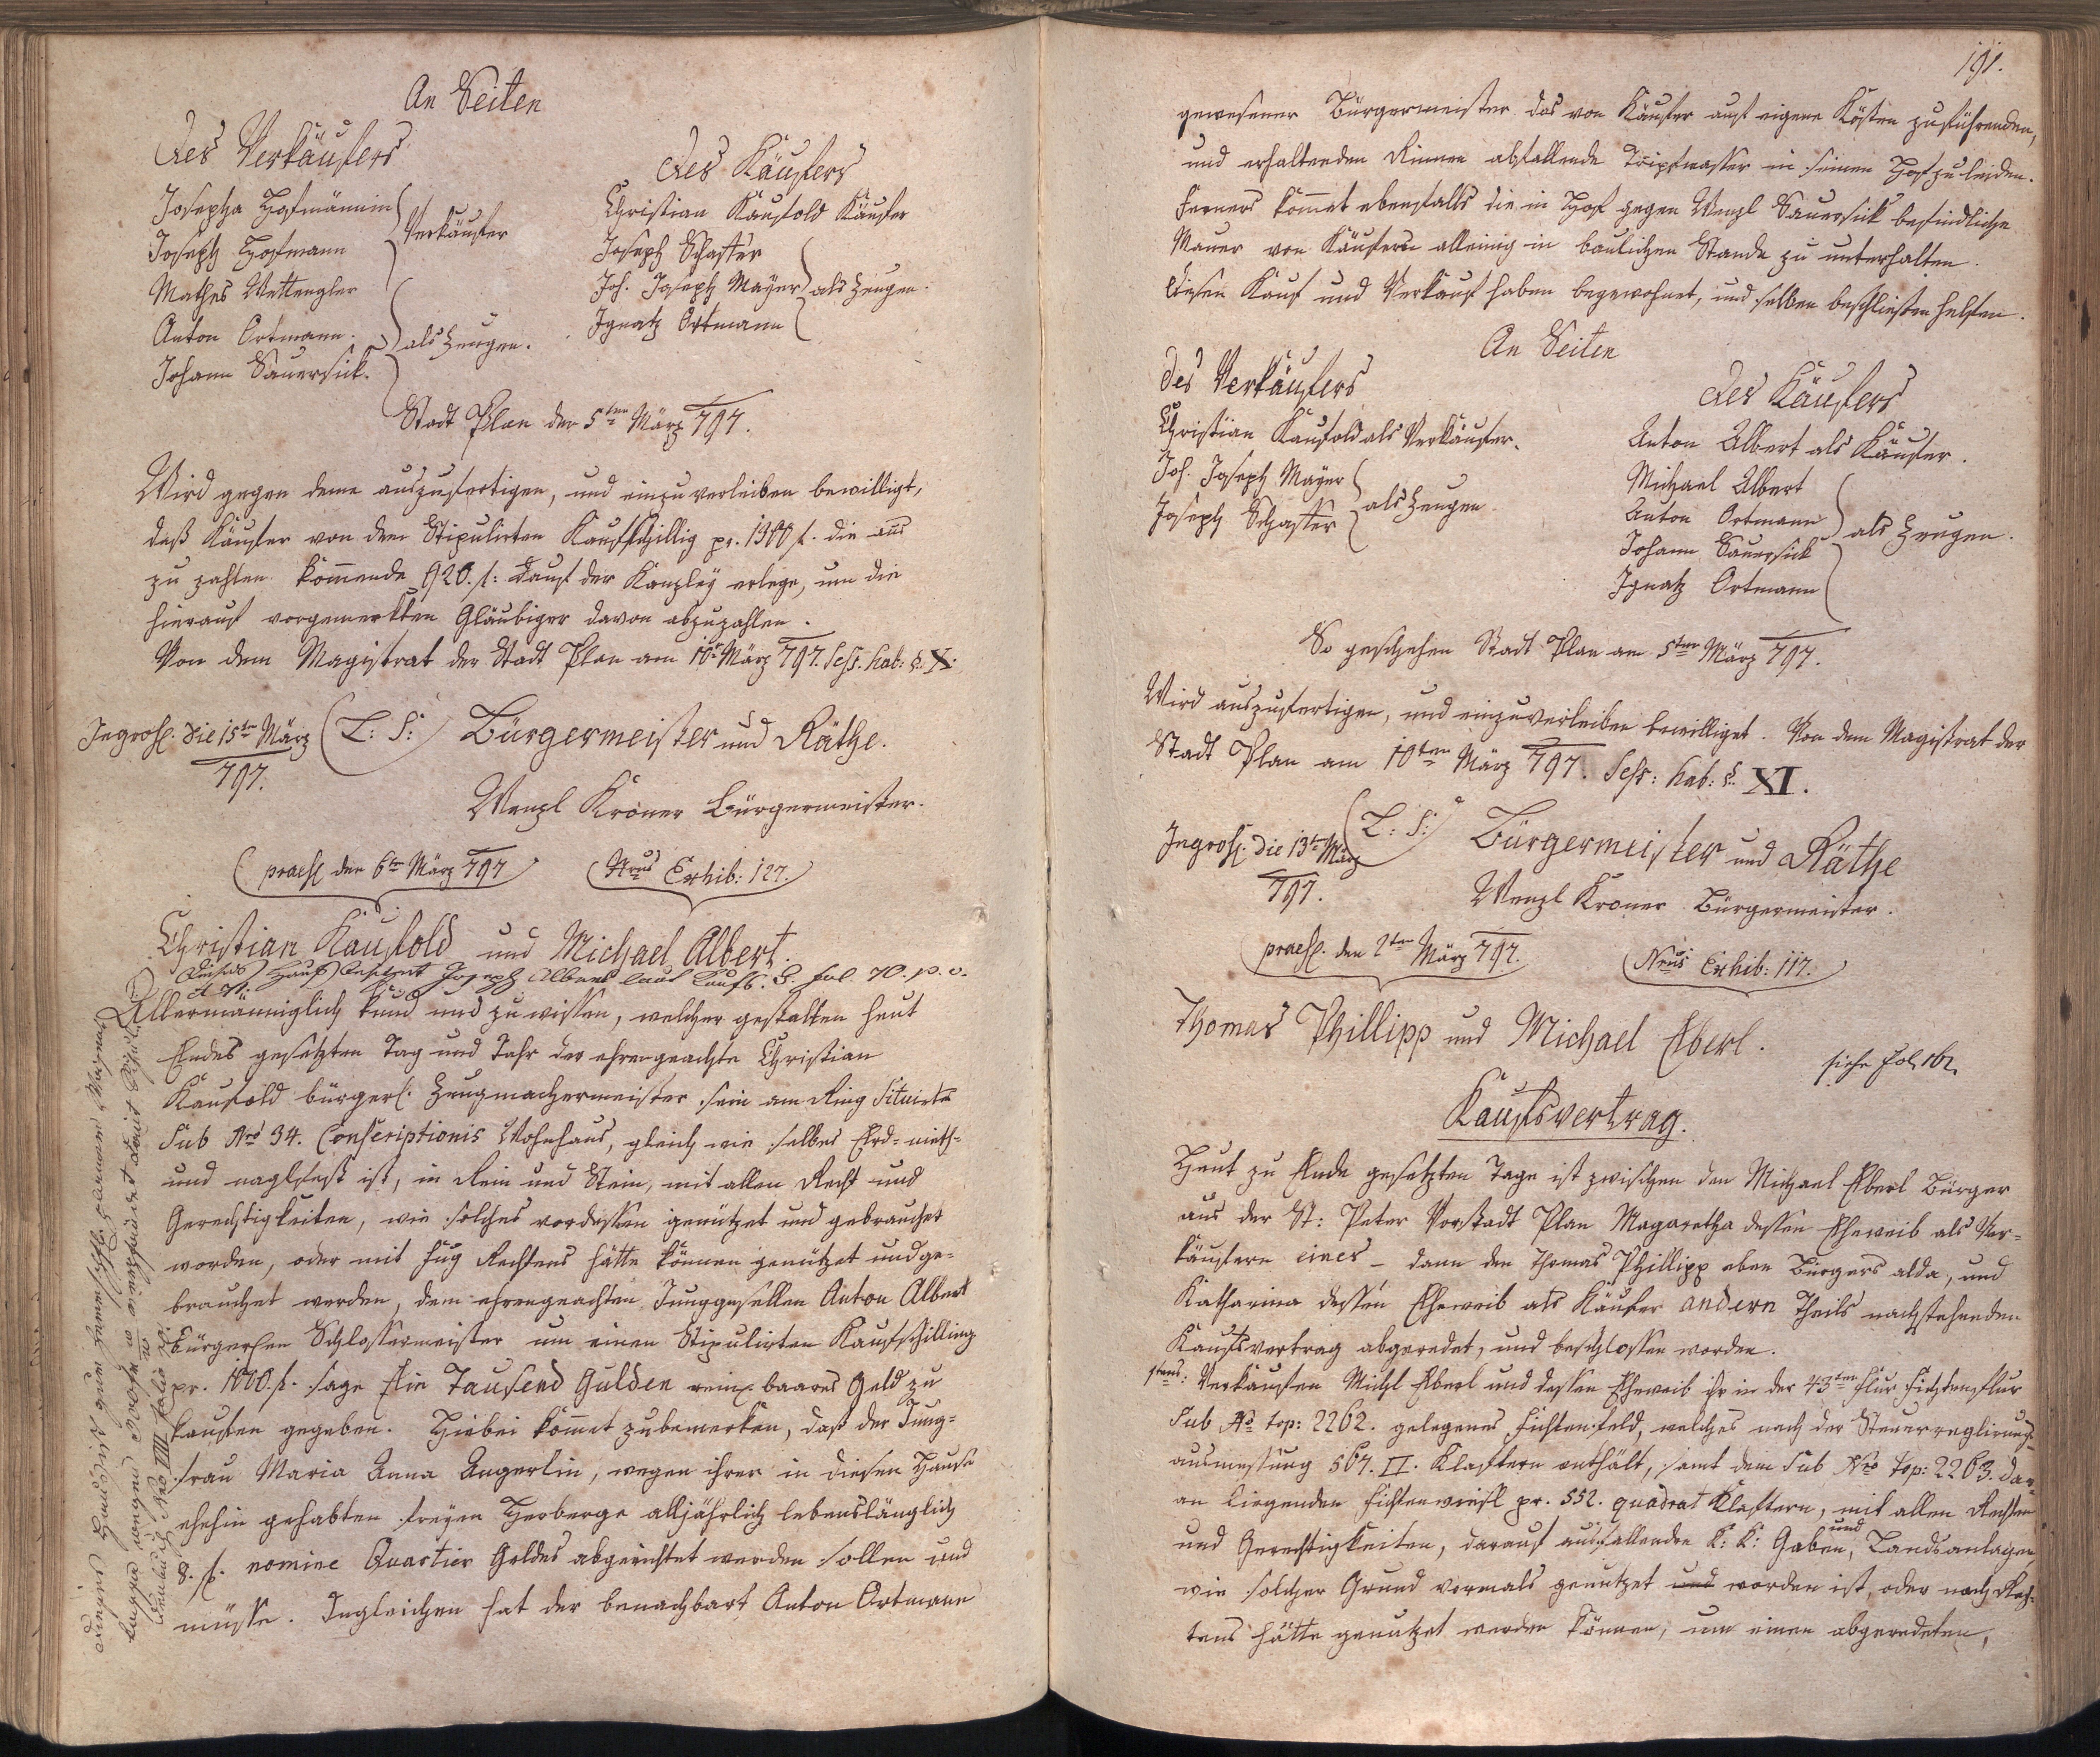 An Seiten
des Verkäufers
Josepha Hofmännin
Joseph Hofmann
Verkäufer
Mathes Wettengler
Anton Ortmann
Johann Sauersick
als Zeugen.
des Käufers
Christian Kaufold Käufer
Joseph Schaffer
Joh. Joseph Mayer
Ignatz Ortmann
als Zeugen.
Stadt Plan den 5ten März 797.
Wird gegen deme auszufertigen, und einzuverleiben bewilligt,
daß Käufer von dem Stipulirten Kaufschillig pr. 1300 f. die
zu zahlen kommende 920. f: der Kanzley erlege, um die
hierauf vorgemerkten Gläubiger davon abzuzahlen.
Von dem Magistrat der Stadt Plan am 10t März 797. Sess. hab: §. X.
Ingross. die 15ten März
797.
(L: S:) Bürgermeister und Räthe.
Wenzl Kroner Bürgermeister.
praes. den 6ten März 797
Nrus Exhib: 127.
Christian Kaufold und Michael Albert.
Dieses Haus besitzet Joseph Albert laut Kaufb. fol. 70. p. v.
et 71.
Allermänniglich kund und zu wissen, welcher gestalten heut
Endes gesetzten Tag und Jahr der ehrengeachte Christian
Kaufold bürgerl. Zeugmachermeister sein am Ring Situirtes
Sub Nro 34. Conscriptionis Wohnhaus, gleich wie selbes Erd- nieth-
und naglfest ist, in Rein und Stein, mit allen Recht und
Gerechtigkeiten, wie solches vordessen genützet und gebrauchet
worden, oder mit Fug Rechtens hätte können genützet und ge-
brauchet werden, dem ehrengeachten Junggesellen Anton Albert
bürgerlen Schlossermeister um einen Stipulirten Kaufschilling
pr. 1000. f. sage Ein Tausend Gulden rein baares Geld zu
kaufen gegeben. Hiebei kömmet zubemerken, daß der Jung-
frau Maria Anna Angerlin, wegen ihrer in diesen Hause
ehehin gehabten freyen Herberge alljährlich lebenslänglich
8. f. nomine Quartier Geldes abgerichtet werden sollen und
müsse. Ingleichen hat der benachbart Anton Ortmann
191.
gewesener Bürgermeister das von Käufer auf eigene Kösten zuführenden,
und erhaltenden Rinnen abfallende Tripfwasser in seinen Hof zu leiden.
Ferners kömmet ebenfalls die in Hof gegen Wenzl Sauersick befindliche
Mauer von Käufern alleinig in baulichen Stande zu unterhalten.
Diesen Kauf und Verkauf haben begewohnet, und selben beschließen helfen.
An Seiten
des Verkäufers
Christian Kaufold als Verkäufer.
Joh. Joseph Mayer
Joseph Schaffer
als Zeugen.
des Käufers
Anton Albert als Käufer.
Michael Albert
Anton Ortmann
Johann Sauersick
Ignatz Ortmann
als Zeugen.
So geschehen Stadt Plan am 5ten März 797.
Wird auszufertigen, und einzuverleiben bewilliget. Von dem Magistrat der
Stadt Plan am 10ten März 797. Sess: hab: §. XI.
Ingross. die 13ten März
797.
(L: S:) Bürgermeister und Räthe
Wenzl Kroner Bürgermeister.
praes. den 2ten März 797.
Nrus Exhib: 117.
Thomas Phillipp und Michael Eberl.
siehe Fol. 162.
Kaufsvertrag.
Heut zu Ende gesetzten Tage ist zwischen den Michael Eberl Bürger
aus der St: Peter Vorstadt Plan Magaretha dessen Eheweib als Ver-
käufern eines – dann den Thomas Phillipp eben Bürgers alda, und
Katharina dessen Eheweib als Käufer andern Theils nachstehenden
Kaufsvertrag abgeredet, und beschlossen worden.
1tens: Verkaufen Michl Eberl und dessen Eheweib ihr in der 43ten Flur Fichtenflur
Sub No top: 2262. gelegenes Fichtenfeld, welches nach der Steuerreglirungs-
ausmessung 567. II. Klaftern enthält, samt dem Sub Nro top: 2263. dar-
an liegenden Fichtenwiesl pr. 552. quadrat Klaftern, mit allen Rechten
und Gerechtigkeiten, darauf ausfallenden K: K: Gaben, und Landsanlagen
wie solcher Grund vormals genutzet und worden ist, oder nach Rech-
tens hätte genutzet werden können, um einen abgeredeten,